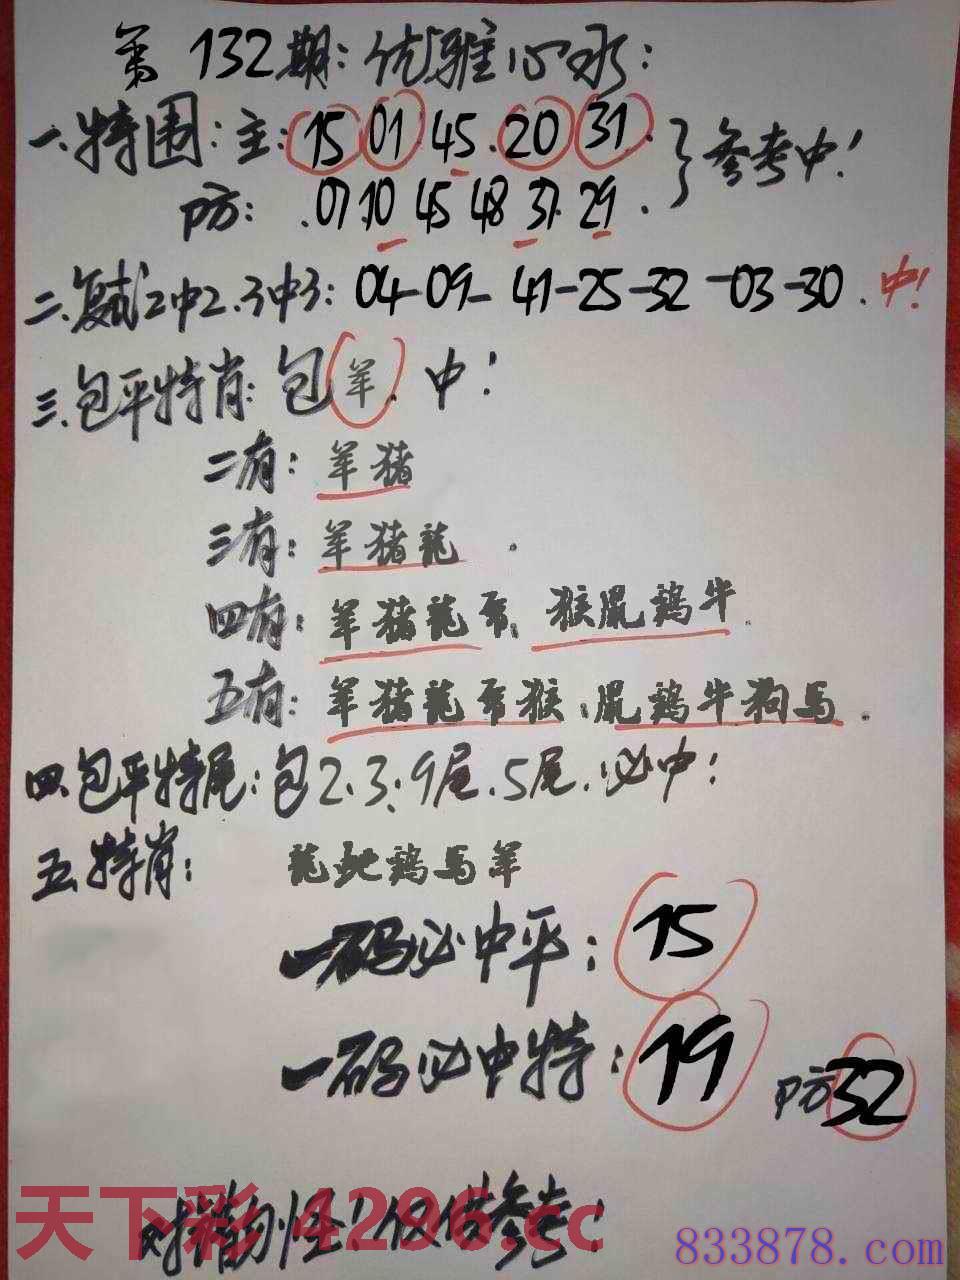 第132期：优雅心水：
一.特围：主：15 01 45.20 31. }参考中！
防：.07.10 45 48 37.29.
二.复试2中2.3中3：04-09-41-25-32-03-30.中！
三.包平特肖：包羊.中！
二有：羊猪
三有：羊猪龍.
四有：羊猪龍 猴鼠鷄牛.
五有：羊猪龍 猴.鼠鷄牛狗马.
四.包平特尾：包2.3.9尾.5尾.必中！
五.特肖：龍蛇鷄马羊
一码必中平：15
一码必中特：19 防32
对错勿怪！仅供参考！
天下彩 4296.cc
833878.com